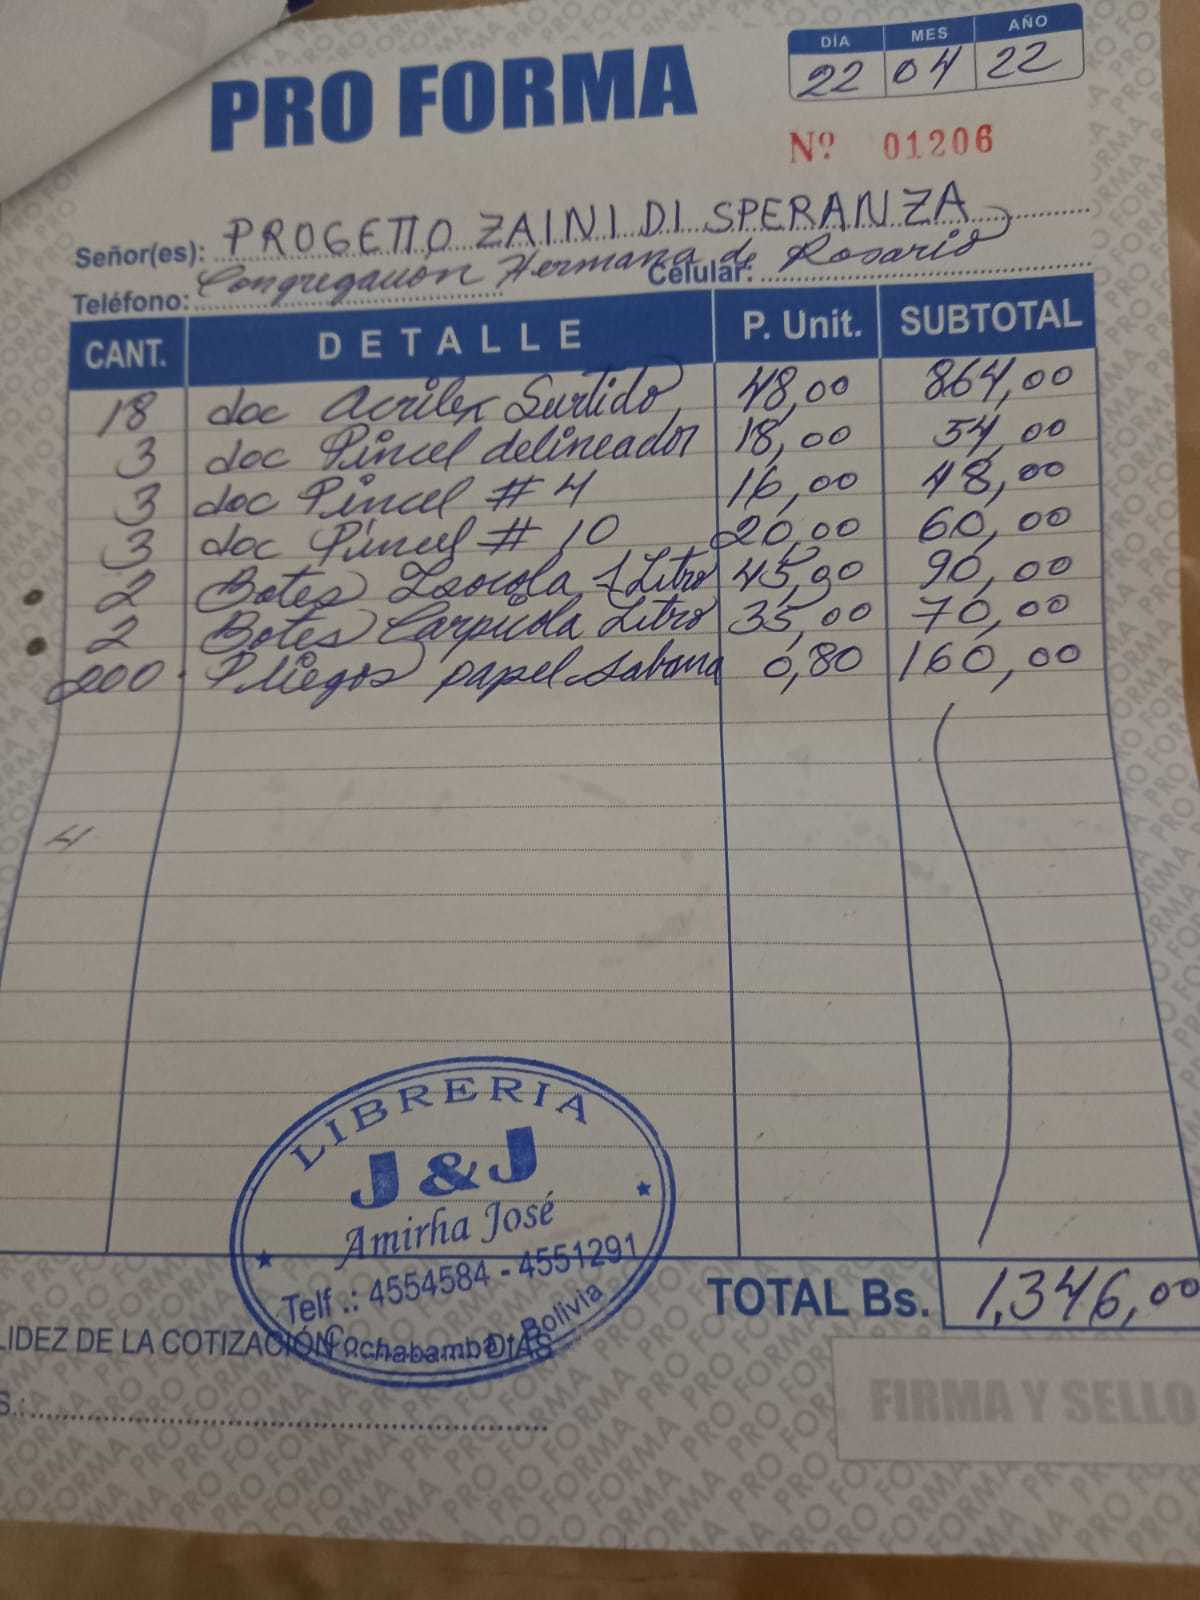 PRO FORMA
DÍA MES AÑO
22 04 22
Nº 01206
Señor(es): PROGETTO ZAINI DI SPERANZA
Congregación Hermana de Rosario
Teléfono: Celular:
CANT. DETALLE P. Unit. SUBTOTAL
18 doc Acrilex Surtido 48,00 864,00
3 doc Pincel delineador 18,00 54,00
3 doc Pincel # 4 16,00 48,00
3 doc Pincel # 10 20,00 60,00
2 Botes Isocola 1 Litro 45,00 90,00
2 Botes Carpicola Litro 35,00 70,00
200 Pliegos papel sabana 0,80 160,00
4
LIBRERIA
J & J
Amirha José
Telf.: 4554584 - 4551291
Cochabamba - Bolivia
TOTAL Bs. 1,346,00
LIDEZ DE LA COTIZACIÓN DIAS
S.:
FIRMA Y SELLO